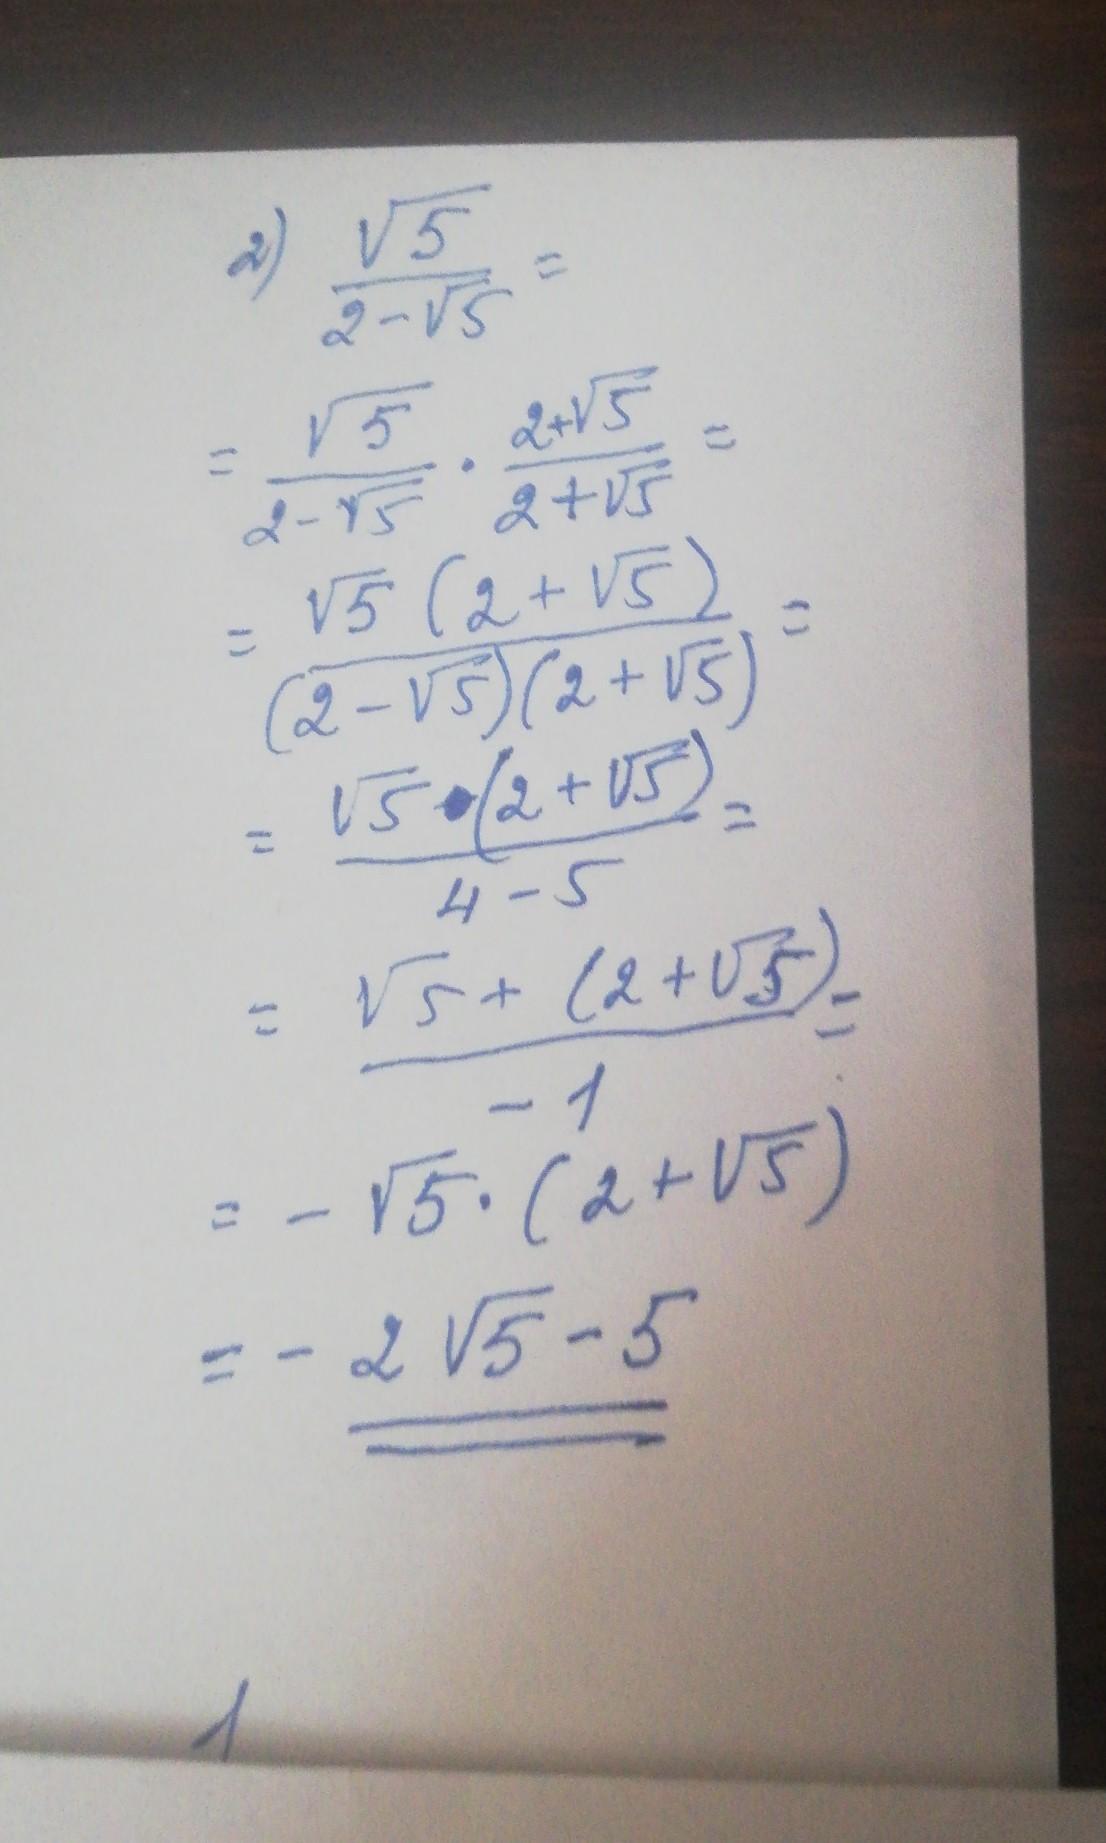 2) √5/(2-√5) =
= √5/(2-√5) · (2+√5)/(2+√5) =
= √5(2+√5)/((2-√5)(2+√5)) =
= √5·(2+√5)/(4-5) =
= √5+(2+√5)/(-1) =
= -√5·(2+√5)
= -2√5-5
1